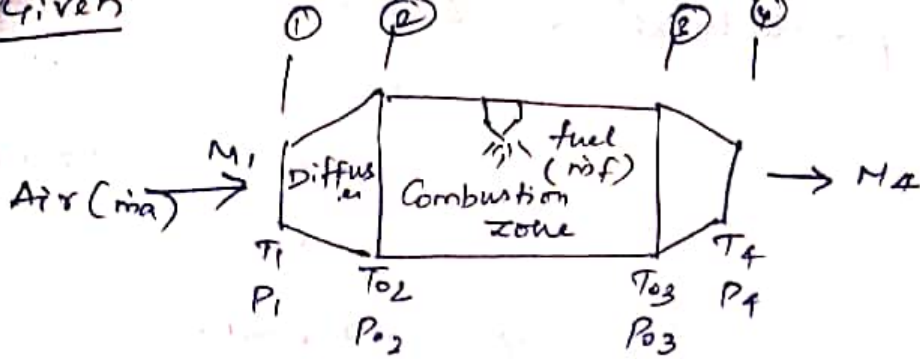 Given
① ② ③ ④
M₁
Air (ṁa)
Diffus
er
fuel
(ṁf)
Combustion
zone
M4
T₁
P₁
To2
Po2
To3
Po3
T4
P4